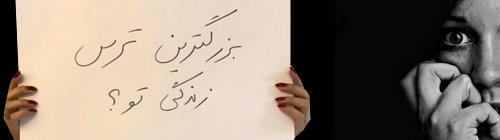 بزرگترین ترس
زندگی تو؟